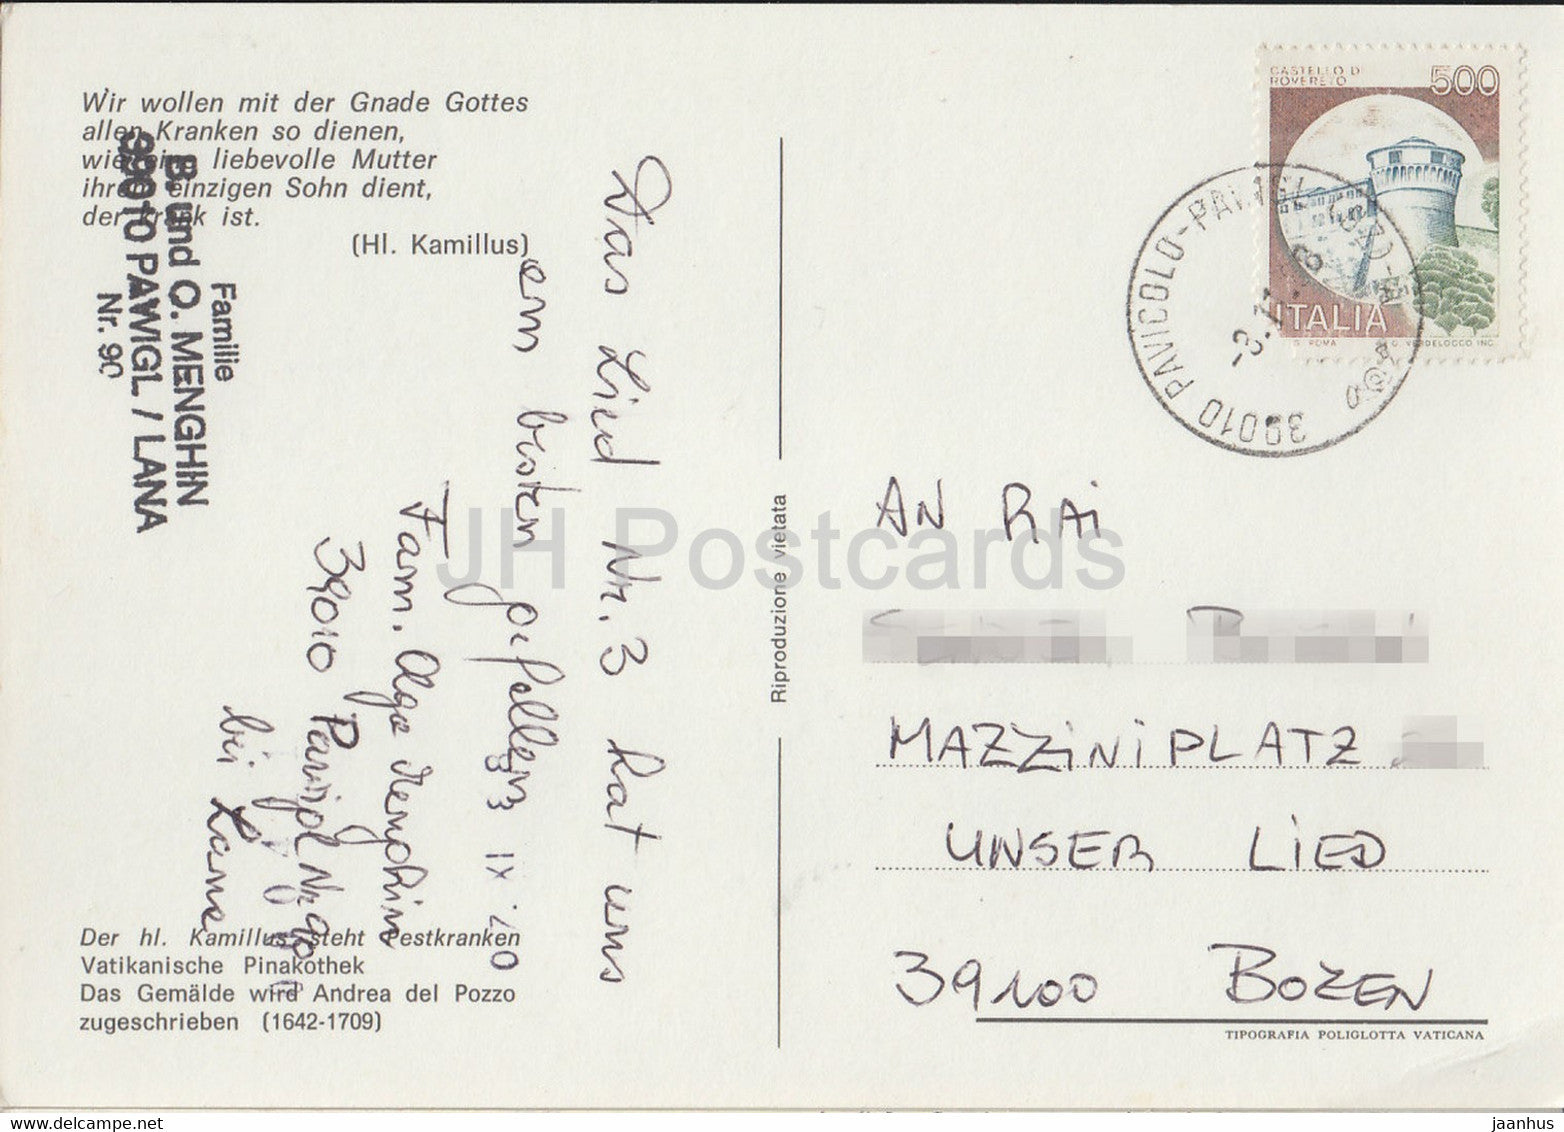 Wir wollen mit der Gnade Gottes
allen Kranken so dienen,
wie eine liebevolle Mutter
ihrem einzigen Sohn dient,
der krank ist.
(Hl. Kamillus)
Familie
B. und O. MENGHIN
39010 PAWIGL / LANA
Nr. 90
Das Lied Nr. 3 hat uns
am besten gefallen
Fam. Olga Menghin
39010 Pawigl Nr 90
bei Lana
Der hl. Kamillus steht Pestkranken
Vatikanische Pinakothek
Das Gemälde wird Andrea del Pozzo
zugeschrieben (1642-1709)
Riproduzione vietata
CASTELLO DI
ROVERETO
500
ITALIA
ROMA
VERDELOCCO INC.
39010 PAVICOLO-PAWIGL
AN RAI
MAZZINIPLATZ
UNSER LIED
39100 BOZEN
TIPOGRAFIA POLIGLOTTA VATICANA
JH Postcards
jaanhus